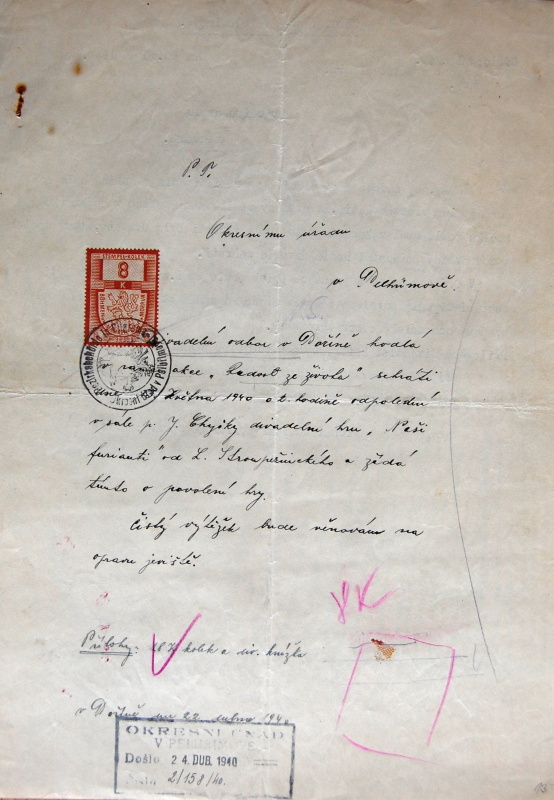 P. T.
Okresnímu úřadu
v Pelhřimově.
STEMPEL-KOLEK
8
K
BÖHMEN
MORAVA
Divadelní odbor v Dobříně hodlá
v rámci akce „Radost ze života" sehráti
dne května 1940 o 2. hodině odpolední
v sále p. J. Chyšky divadelní hru „Naši
furianti" od L. Stroupežnického a žádá
tímto o povolení hry.
Čistý výtěžek bude věnován na
opravu jeviště.
8K
Přílohy: kolek a div. knížka
v dne 22. dubna 1940
OKRESNÍ ÚŘAD
V PELHŘIMOVĚ
Došlo 24. DUB. 1940
2/158/40.